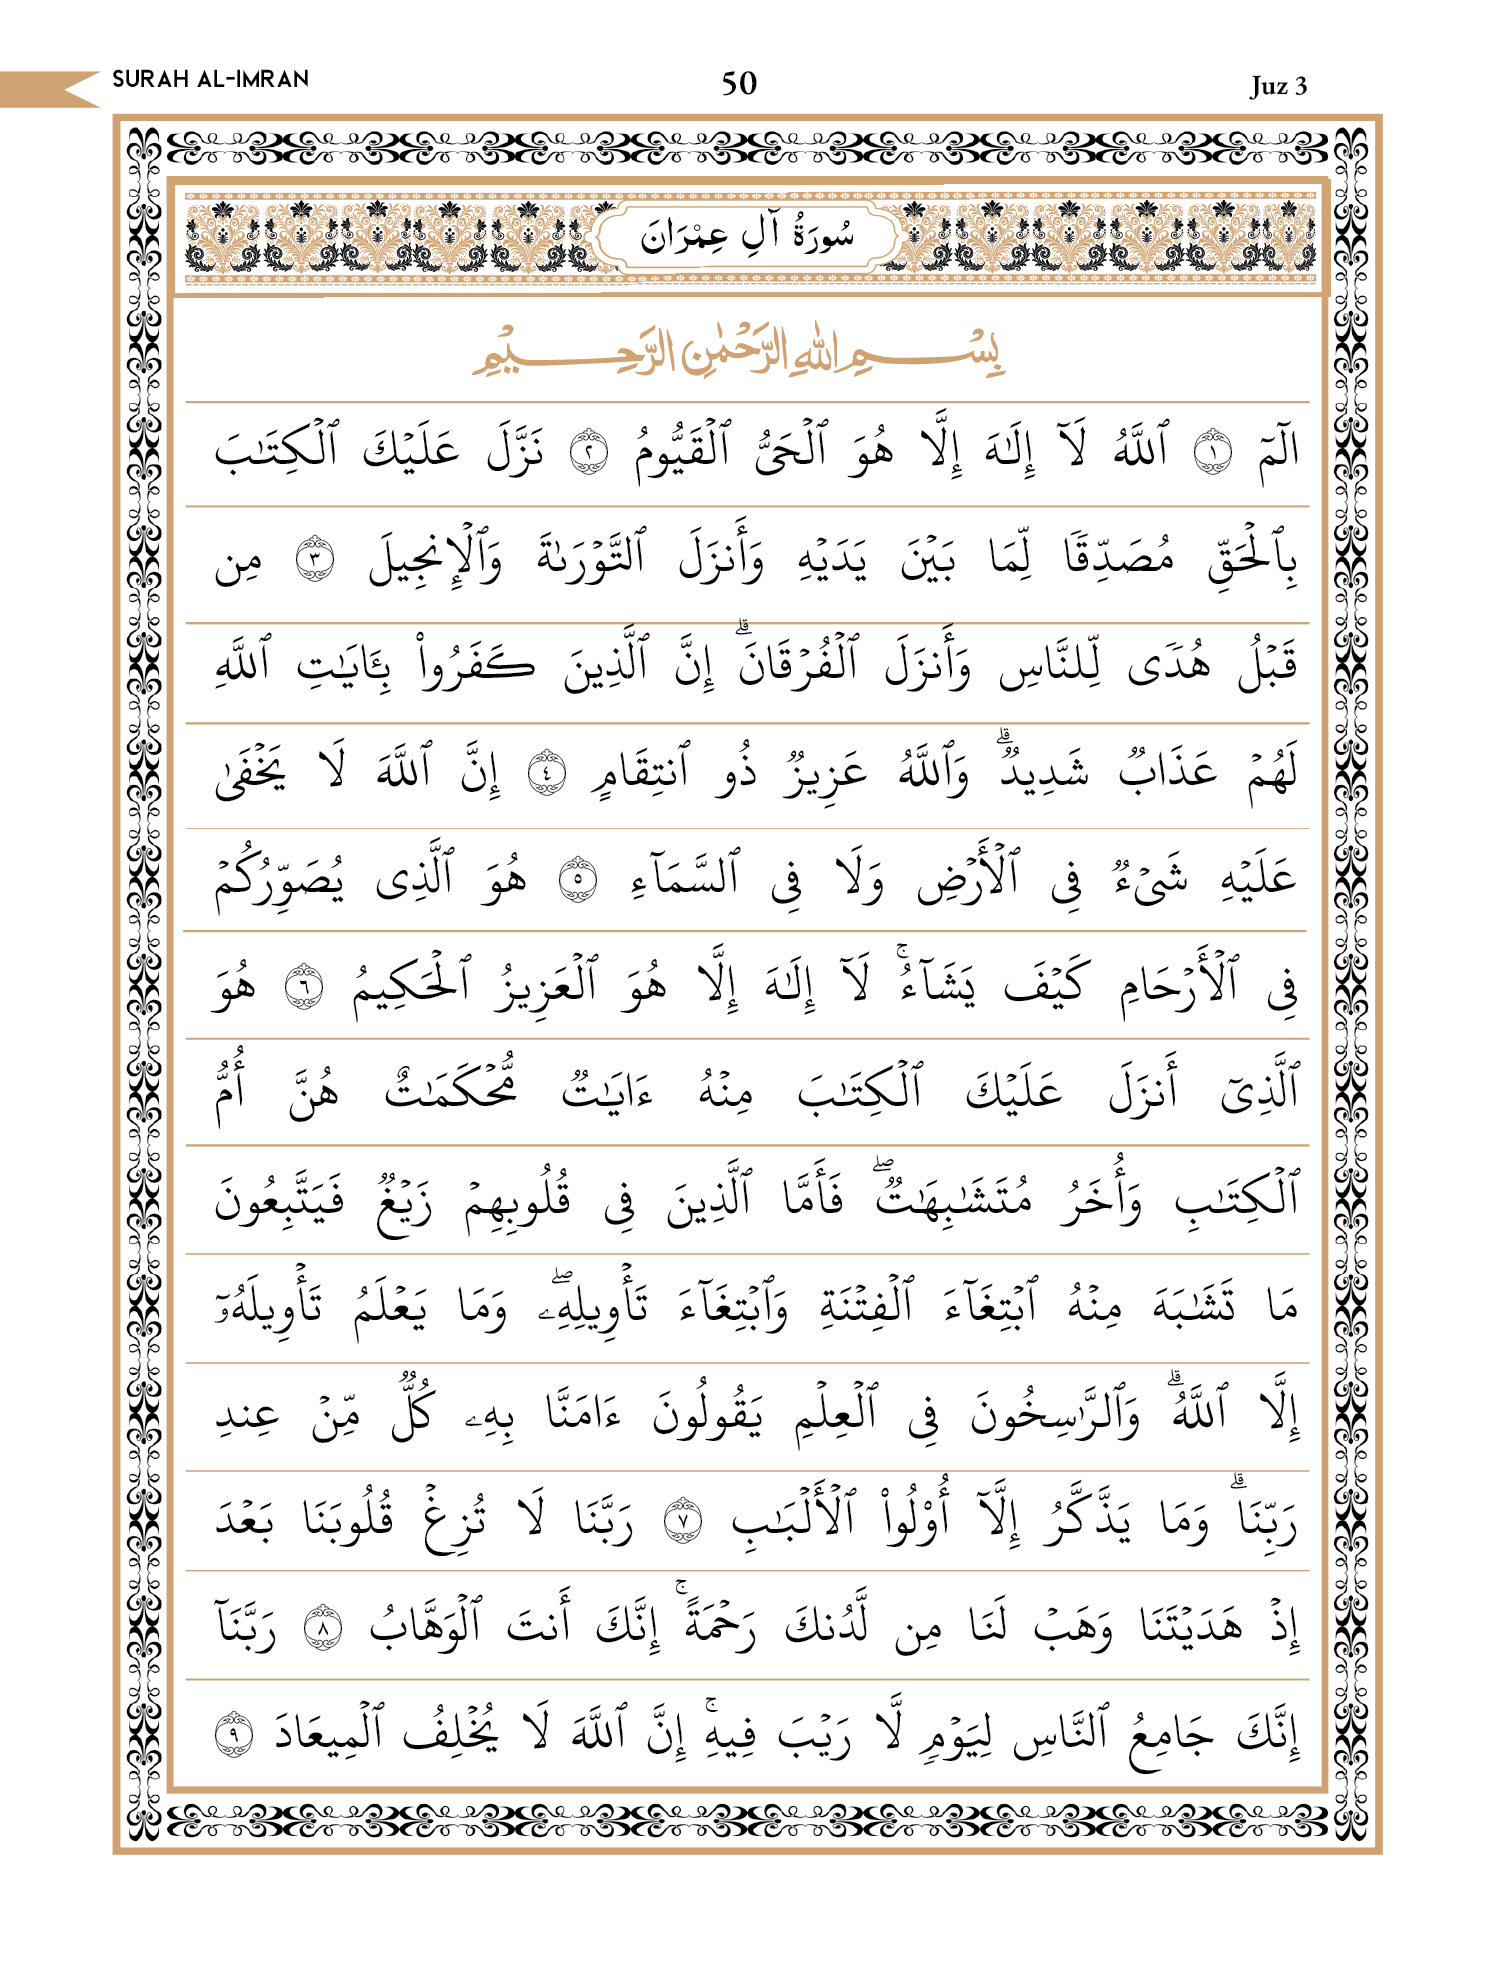 SURAH AL-IMRAN 50 Juz 3
سُورَةُ آلِ عِمْرَانَ
بِسْمِ اللهِ الرَّحْمٰنِ الرَّحِيْمِ
الٓمٓ ١ ٱللَّهُ لَآ إِلَـٰهَ إِلَّا هُوَ ٱلْحَىُّ ٱلْقَيُّومُ ٢ نَزَّلَ عَلَيْكَ ٱلْكِتَـٰبَ
بِٱلْحَقِّ مُصَدِّقًا لِّمَا بَيْنَ يَدَيْهِ وَأَنزَلَ ٱلتَّوْرَىٰةَ وَٱلْإِنجِيلَ ٣ مِن
قَبْلُ هُدًى لِّلنَّاسِ وَأَنزَلَ ٱلْفُرْقَانَ ۗ إِنَّ ٱلَّذِينَ كَفَرُوا۟ بِـَٔايَـٰتِ ٱللَّهِ
لَهُمْ عَذَابٌ شَدِيدٌ ۗ وَٱللَّهُ عَزِيزٌ ذُو ٱنتِقَامٍ ٤ إِنَّ ٱللَّهَ لَا يَخْفَىٰ
عَلَيْهِ شَىْءٌ فِى ٱلْأَرْضِ وَلَا فِى ٱلسَّمَآءِ ٥ هُوَ ٱلَّذِى يُصَوِّرُكُمْ
فِى ٱلْأَرْحَامِ كَيْفَ يَشَآءُ ۚ لَآ إِلَـٰهَ إِلَّا هُوَ ٱلْعَزِيزُ ٱلْحَكِيمُ ٦ هُوَ
ٱلَّذِىٓ أَنزَلَ عَلَيْكَ ٱلْكِتَـٰبَ مِنْهُ ءَايَـٰتٌ مُّحْكَمَـٰتٌ هُنَّ أُمُّ
ٱلْكِتَـٰبِ وَأُخَرُ مُتَشَـٰبِهَـٰتٌ ۖ فَأَمَّا ٱلَّذِينَ فِى قُلُوبِهِمْ زَيْغٌ فَيَتَّبِعُونَ
مَا تَشَـٰبَهَ مِنْهُ ٱبْتِغَآءَ ٱلْفِتْنَةِ وَٱبْتِغَآءَ تَأْوِيلِهِۦ ۖ وَمَا يَعْلَمُ تَأْوِيلَهُۥٓ
إِلَّا ٱللَّهُ ۗ وَٱلرَّٰسِخُونَ فِى ٱلْعِلْمِ يَقُولُونَ ءَامَنَّا بِهِۦ كُلٌّ مِّنْ عِندِ
رَبِّنَا ۗ وَمَا يَذَّكَّرُ إِلَّآ أُو۟لُوا۟ ٱلْأَلْبَـٰبِ ٧ رَبَّنَا لَا تُزِغْ قُلُوبَنَا بَعْدَ
إِذْ هَدَيْتَنَا وَهَبْ لَنَا مِن لَّدُنكَ رَحْمَةً ۚ إِنَّكَ أَنتَ ٱلْوَهَّابُ ٨ رَبَّنَآ
إِنَّكَ جَامِعُ ٱلنَّاسِ لِيَوْمٍ لَّا رَيْبَ فِيهِ ۚ إِنَّ ٱللَّهَ لَا يُخْلِفُ ٱلْمِيعَادَ ٩